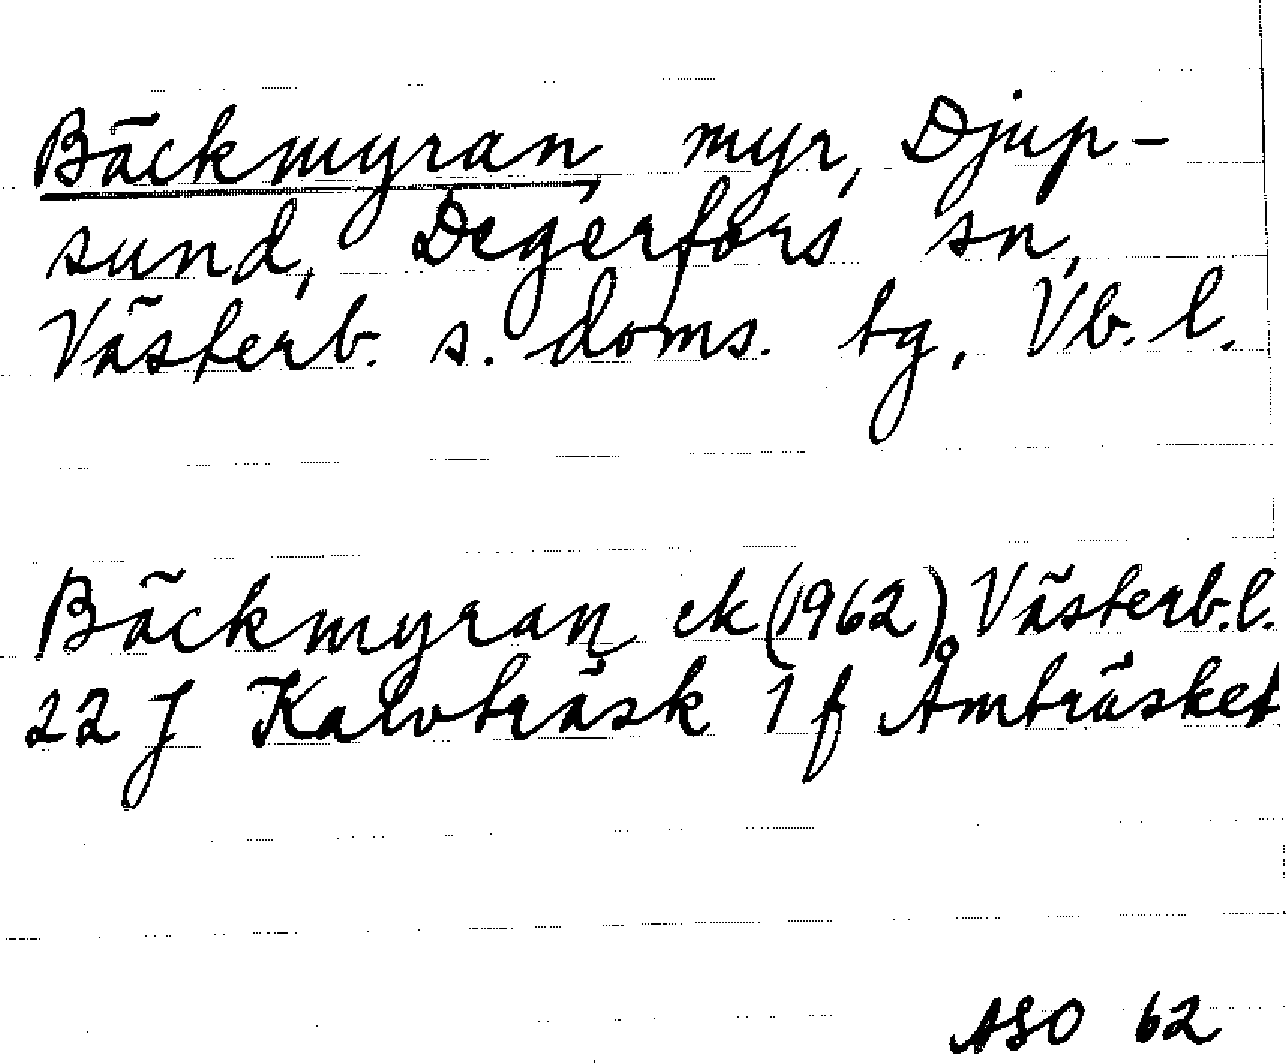 Bäckmyran, myr, Djup-
sund, Degerfors sn,
Västerb. s. doms. tg, Vb. l.
Bäckmyran ek (1962) Västerb. l.
22 J Kalvträsk 1 f Åmträsket
ASO 62